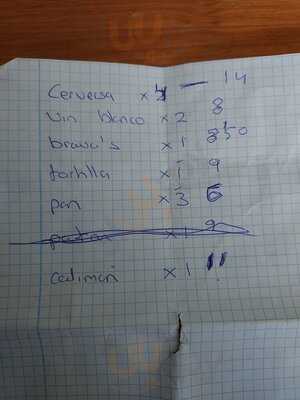 Cerveza x4 — 14
vin blanco x2 8
brava's x1 8'50
tortilla x1 9
pan x3 6
x1 9
x1 11